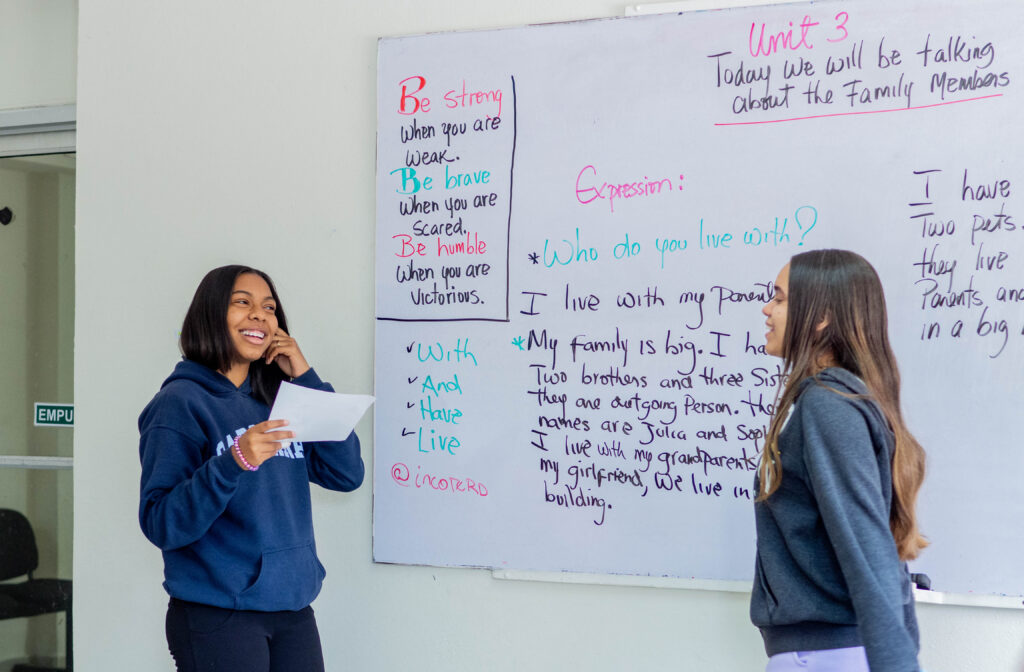 Unit 3
Today We will be talking
about the Family Members
Be strong
when you are
weak.
Be brave
when you are
scared.
Be humble
when you are
victorious.
Expression:
*Who do you live with?
I live with my
*My family is big. I
Two brothers and three
they are outgoing Person.
names are Julia and
I live with my grandparents
my girlfriend, We live in
building.
With
And
Have
Live
@incoterd
I have
Two pets.
they live
Parents, and
in a big
EMPU